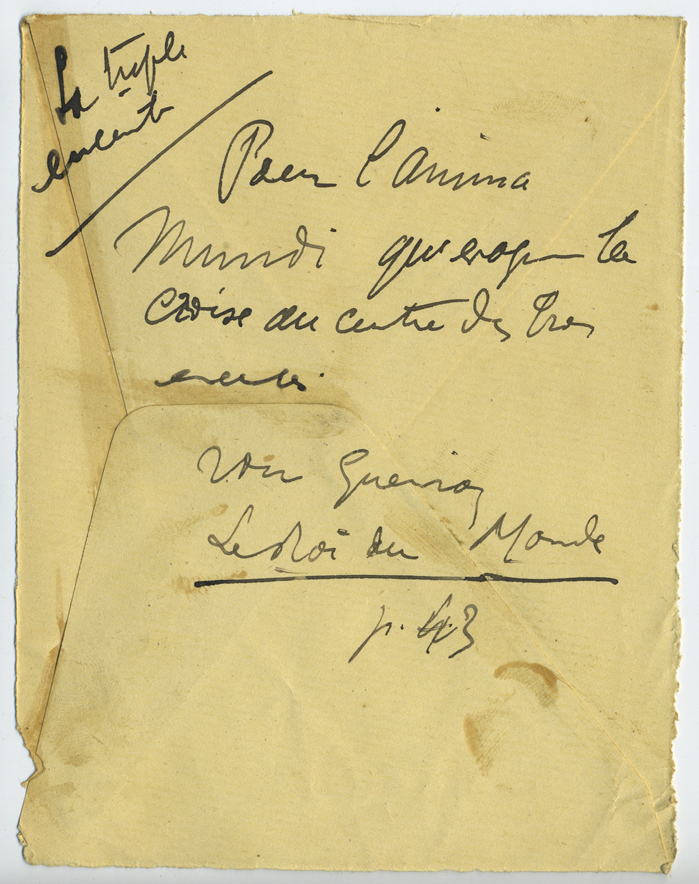 La triple
enceinte
Pour l'anima
Mundi qui la
croise au centre des trois
voir Guenon
Le Roi du Monde
p. 43